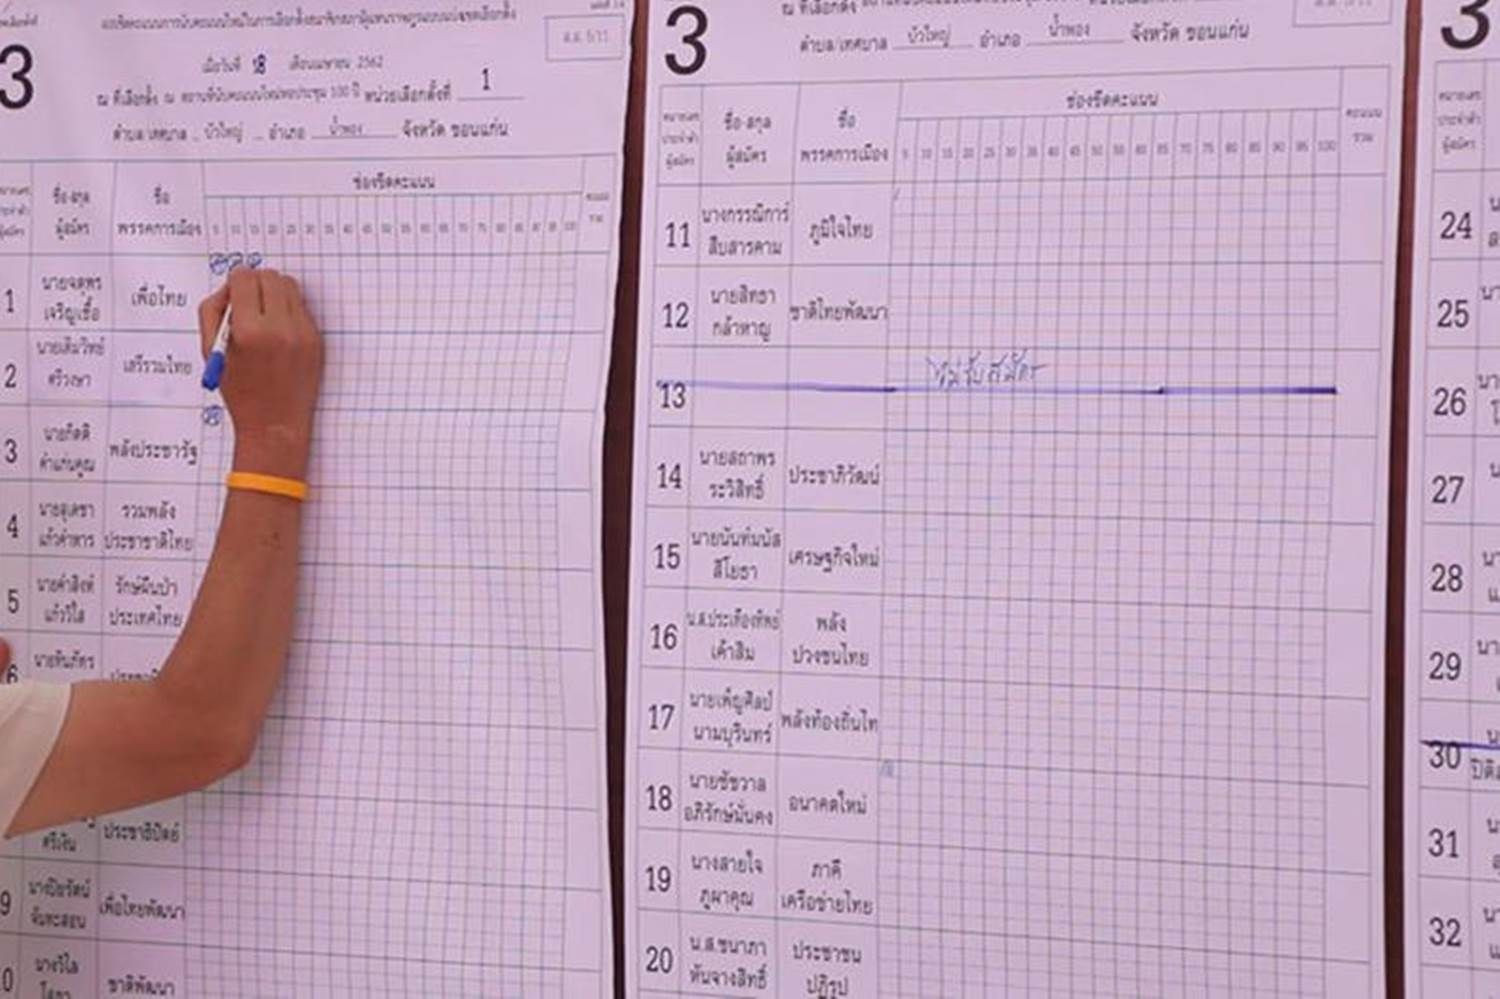 3
แบบขีดคะแนนการนับคะแนนใหม่ในการเลือกตั้งสมาชิกสภาผู้แทนราษฎรแบบแบ่งเขตเลือกตั้ง
ส.ส. 5/11
เมื่อวันที่ 28 เดือนเมษายน 2562
ณ ที่เลือกตั้ง ณ สถานที่นับคะแนนใหม่หอประชุม 100 ปี หน่วยเลือกตั้งที่ 1
ตำบล/เทศบาล บัวใหญ่ อำเภอ น้ำพอง จังหวัด ขอนแก่น
หมายเลขประจำตัวผู้สมัคร ชื่อ-สกุล ผู้สมัคร ชื่อ พรรคการเมือง ช่องขีดคะแนน คะแนนรวม
5 10 15 20 25 30 35 40 45 50 55 60 65 70 75 80 85 90 95 100
1 เจริญเชื้อ เพื่อไทย
2 นายเดิมวิทย์ ศรีวงษา เสรีรวมไทย
3 นายกิตติ คำแก่นคูณ พลังประชารัฐ
4 นายสุเดชา แก้วคำหาร รวมพลังประชาชาติไทย
5 นายคำสิงห์ แก้ววิใส รักษ์ผืนป่าประเทศไทย
6
ศรีเงิน ประชาธิปัตย์
9 นางปิยรัตน์ จันทะสอน เพื่อไทยพัฒนา
นางวิไล โสดา ชาติพัฒนา
3
ณ ที่เลือกตั้ง
ตำบล/เทศบาล บัวใหญ่ อำเภอ น้ำพอง จังหวัด ขอนแก่น
หมายเลขประจำตัวผู้สมัคร ชื่อ-สกุล ผู้สมัคร ชื่อ พรรคการเมือง ช่องขีดคะแนน คะแนนรวม
5 10 15 20 25 30 35 40 45 50 55 60 65 70 75 80 85 90 95 100
11 นางกรรณิการ์ สืบสารคาม ภูมิใจไทย
12 นายสิทธา กล้าหาญ ชาติไทยพัฒนา
13 ไม่รับสมัคร
14 นายสถาพร ระวิสิทธิ์ ประชาภิวัฒน์
15 นายนันท์มนัส สีโยธา เศรษฐกิจใหม่
16 น.ส.ประเทืองทิพย์ เค้าสิม พลังปวงชนไทย
17 นายเพ็ญศิลป์ นามบุรินทร์ พลังท้องถิ่นไท
18 นายชัชวาล อภิรักษ์มั่นคง อนาคตใหม่
19 นางสายใจ ภูผาคุณ ภาคีเครือข่ายไทย
20 น.ส.ชนาภา หันจางสิทธิ์ ประชาชนปฏิรูป
3
หมายเลขประจำตัวผู้สมัคร
24
25
26
27
28
29
30
31
32